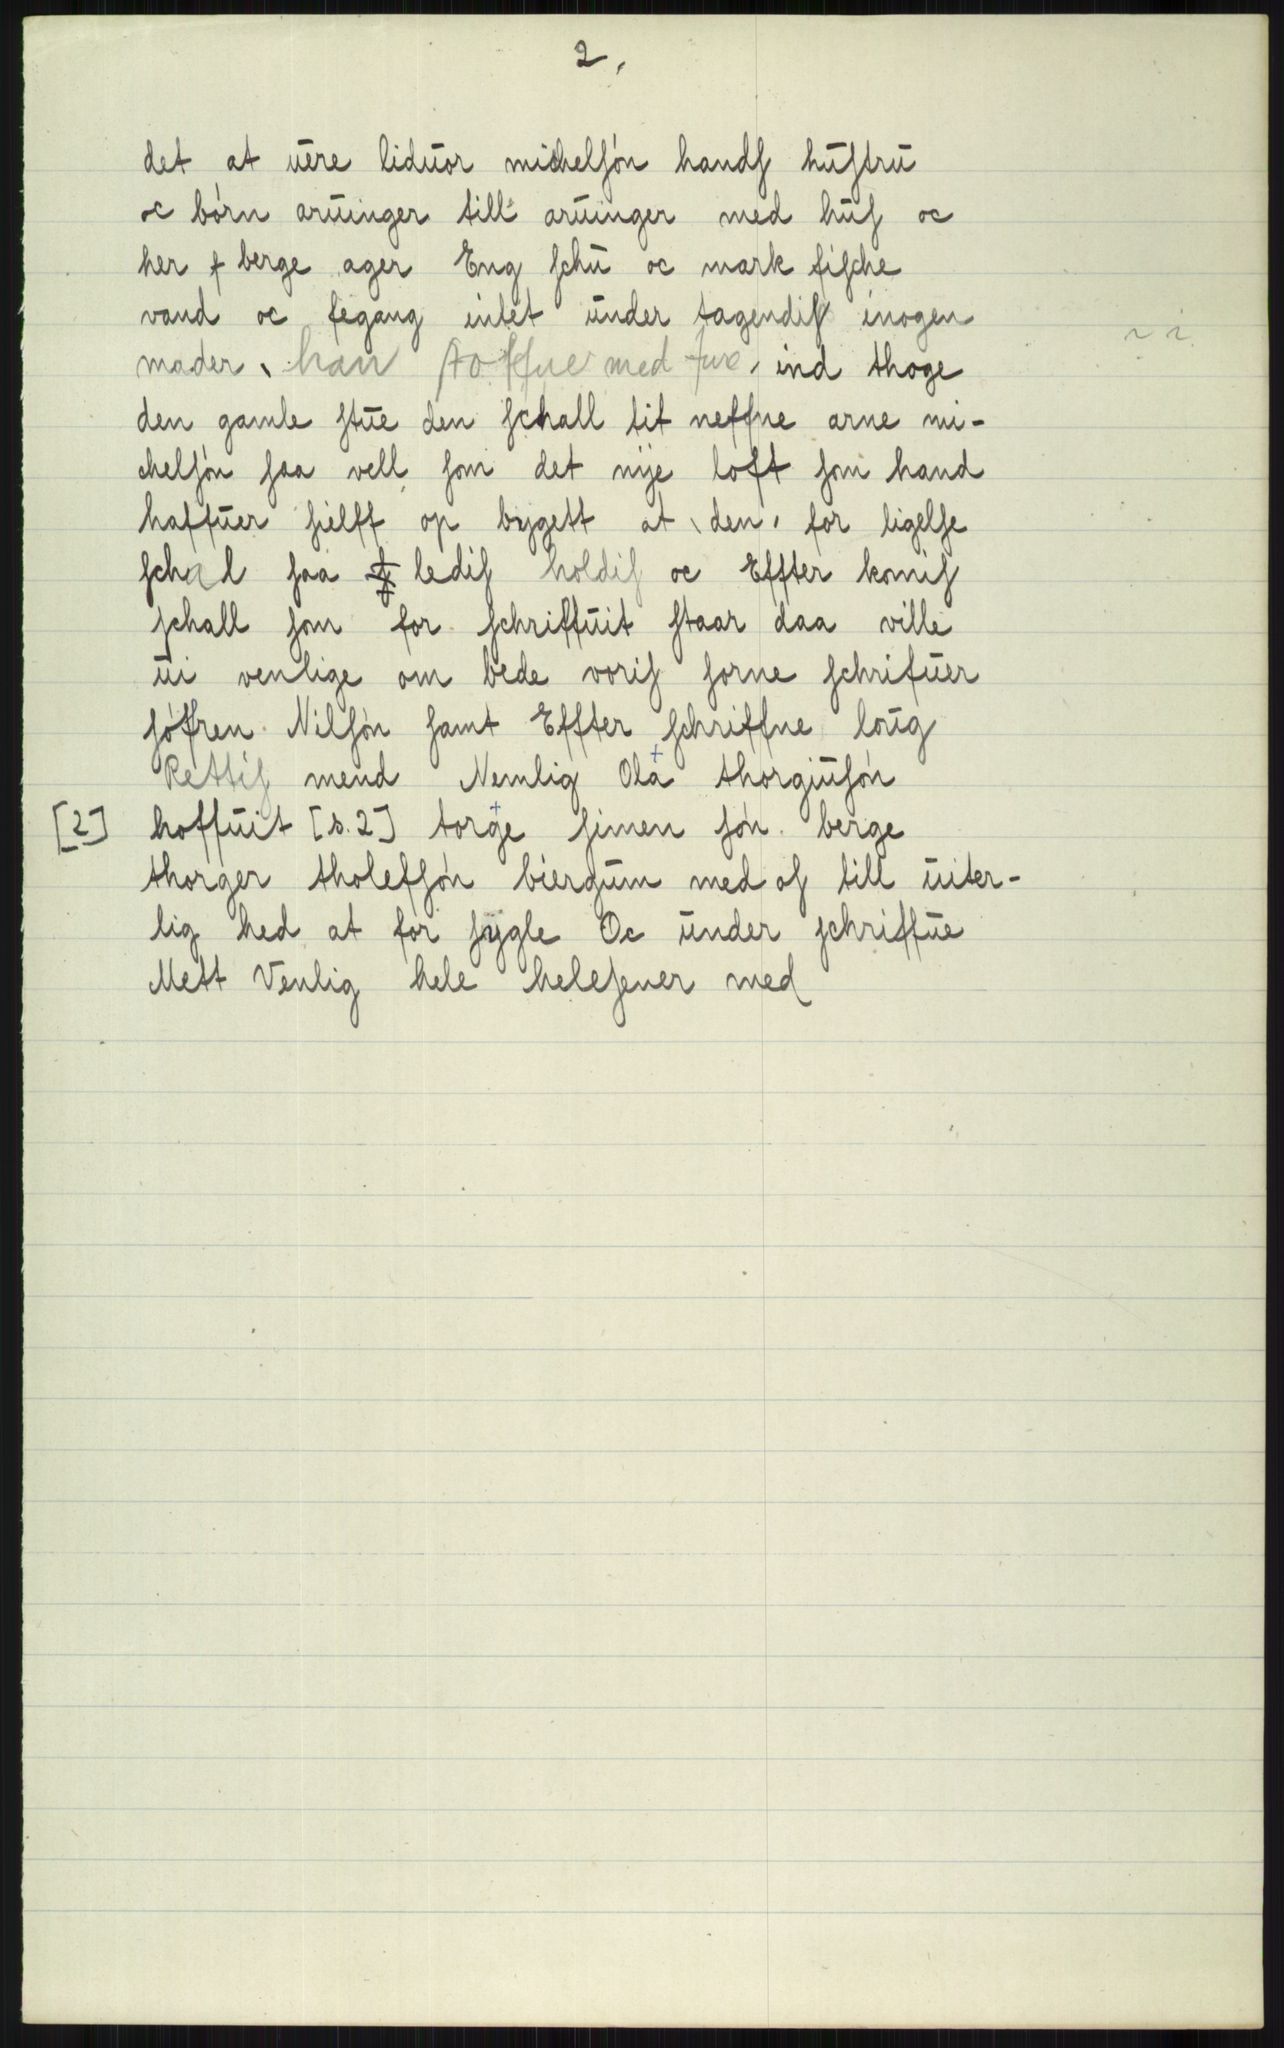 2.
det at uere liduor michelsón hands hustru
oc børn aruinger till aruinger med hus oc
her berge ager Eng schu oc mark fische
vand oc fegang intet under tagendis inogen
mader, han med ind thoge
den gamle stue den schall tit neffne arne mi-
chelsón saa vell som det nÿe loft som hand
haffuer sielff op bygett at den for ligelse
schal saa ledis holdis oc Effter komis
schall som for schriffuit staar daa ville
ui venlige om bede voris sorne schrifuer
sóffren Nilsón samt Effter schriffne loug
Rettis mend Nemlig Ola thorgiusón
[2] hoffuit [s.2] torge simen són berge
thorger tholefsón biergum med os till uiter-
lig hed at for sÿgle Oc under schriffue
Mett Venlig hele helesener med